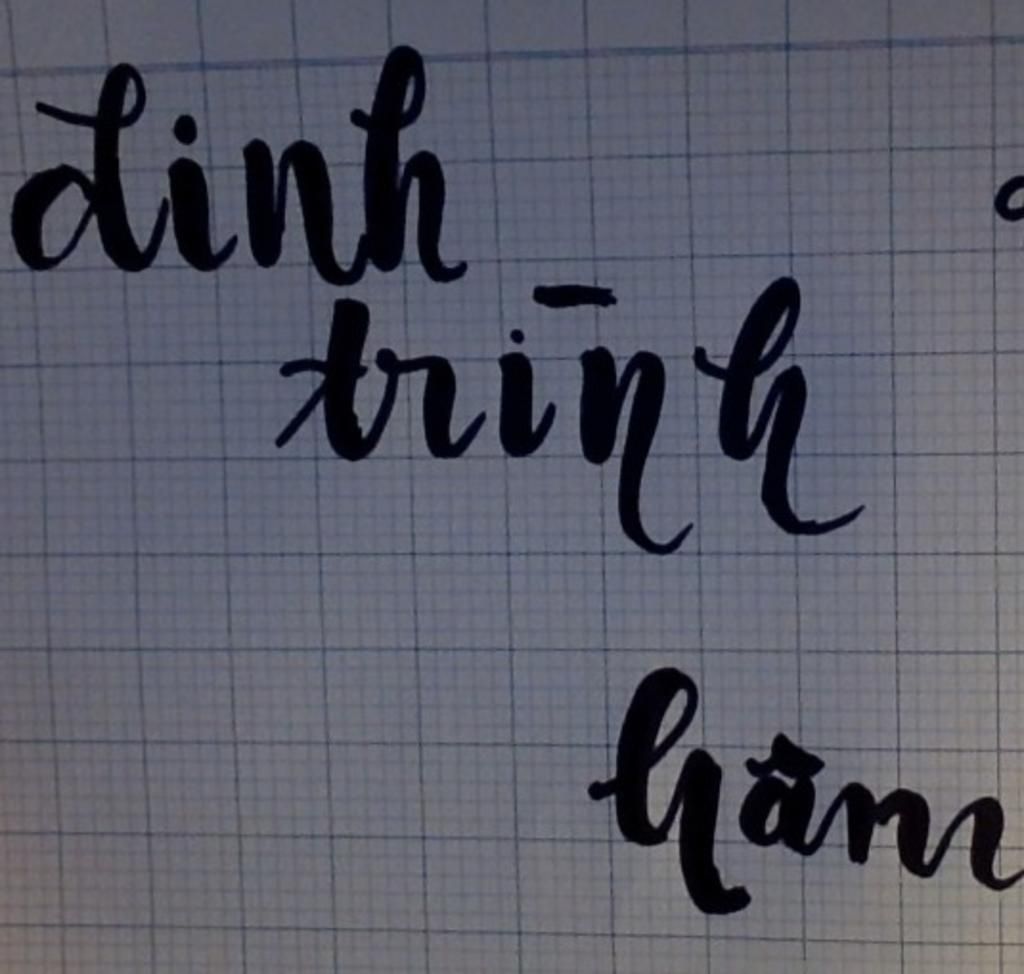 dinh
trình
hâm